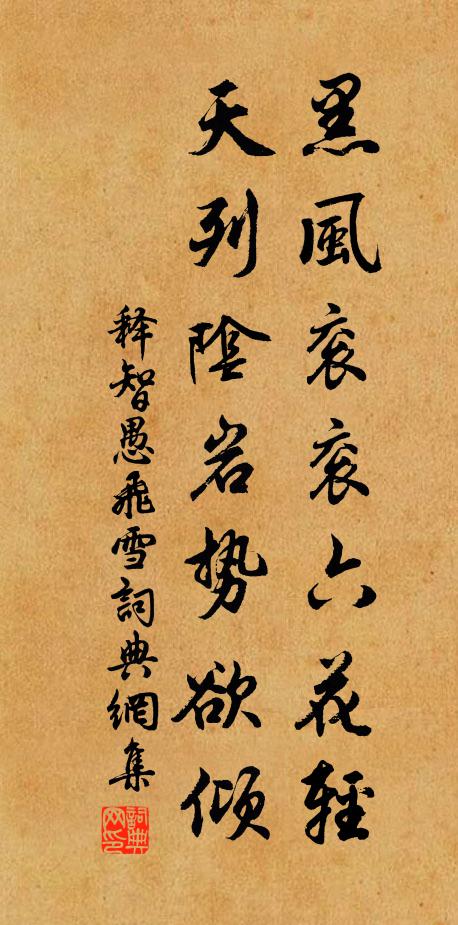 黑風衮衮六花輕
天列陰岩势欲傾
释智愚飛雪詞典網集
詞典网印